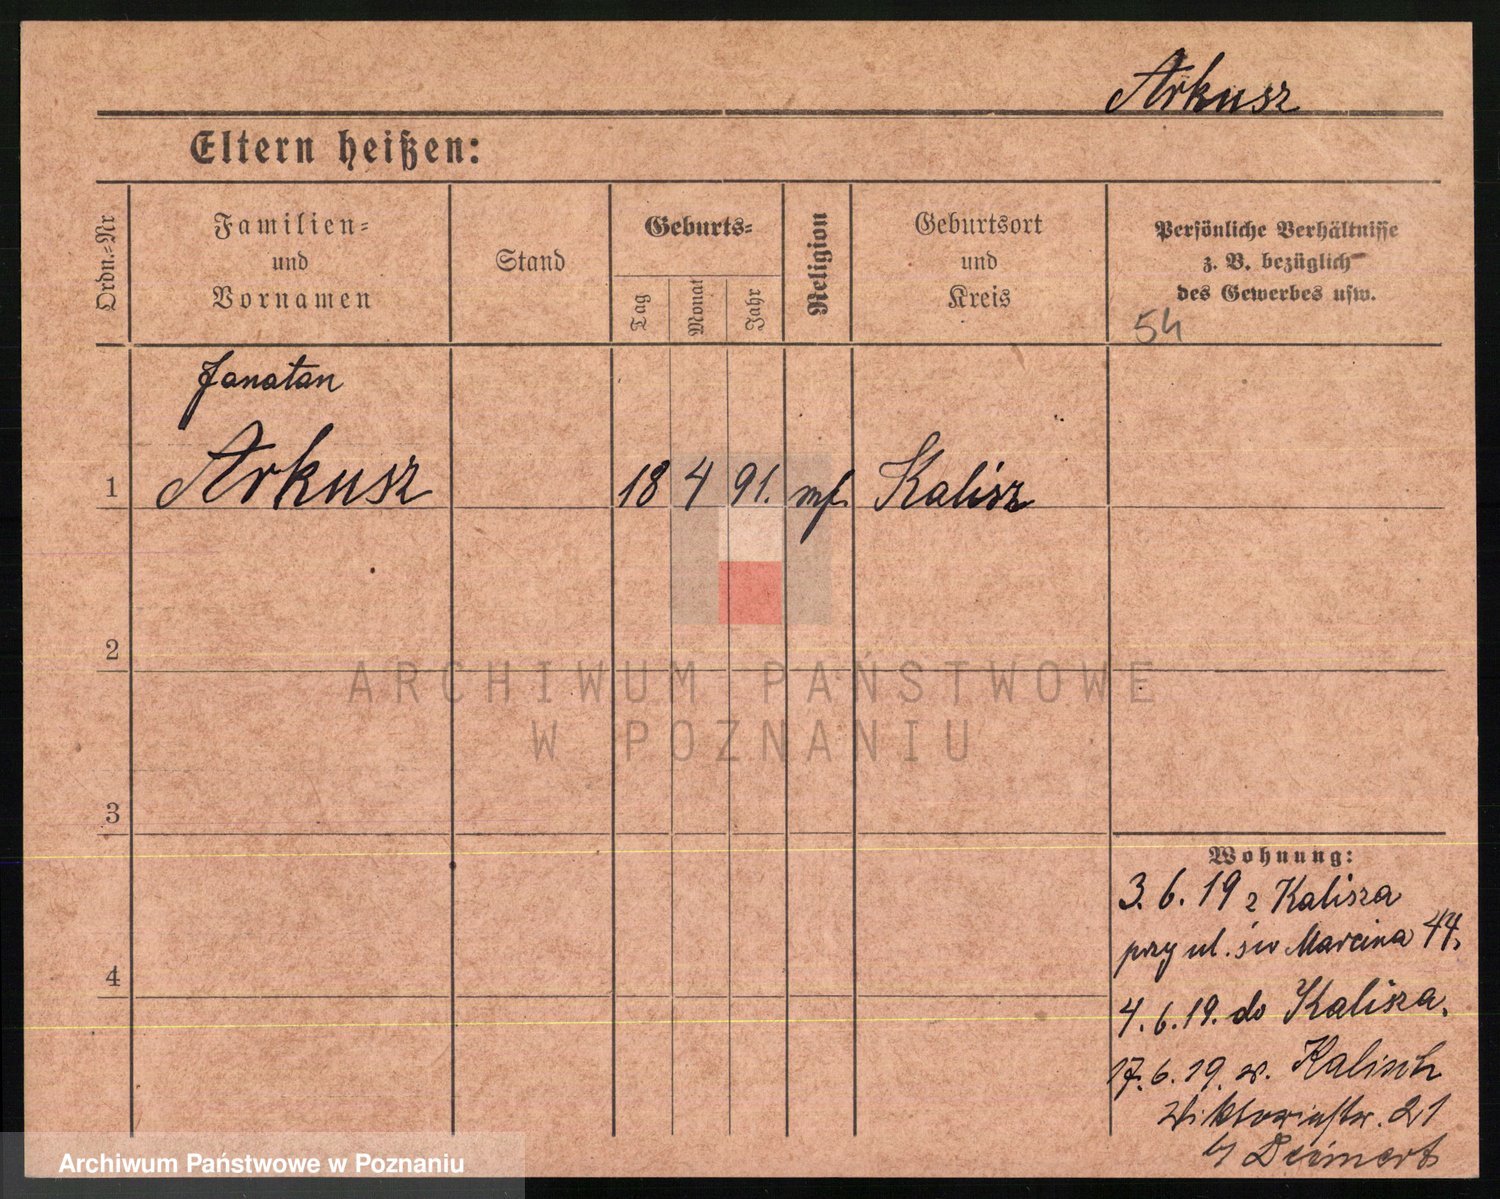 Arkusz
Eltern heißen:
Ordn.=Nr
Familien=
und
Vornamen
Stand
Geburts=
Tag
Monat
Jahr
Religion
Geburtsort
und
Kreis
Persönliche Verhältnisse
z. B. bezüglich
des Gewerbes usw.
54
Janatan
1 Arkusz 18 4 91. Kalisz
2
ARCHIWUM PAŃSTWOWE
W POZNANIU
3
Wohnung:
3. 6. 19 z Kalisza
przy ul. św Marcina 44.
4
4. 6. 19. do Kalisza.
17. 6. 19. v. Kalisch
Viktoriastr. 21
Archiwum Państwowe w Poznaniu